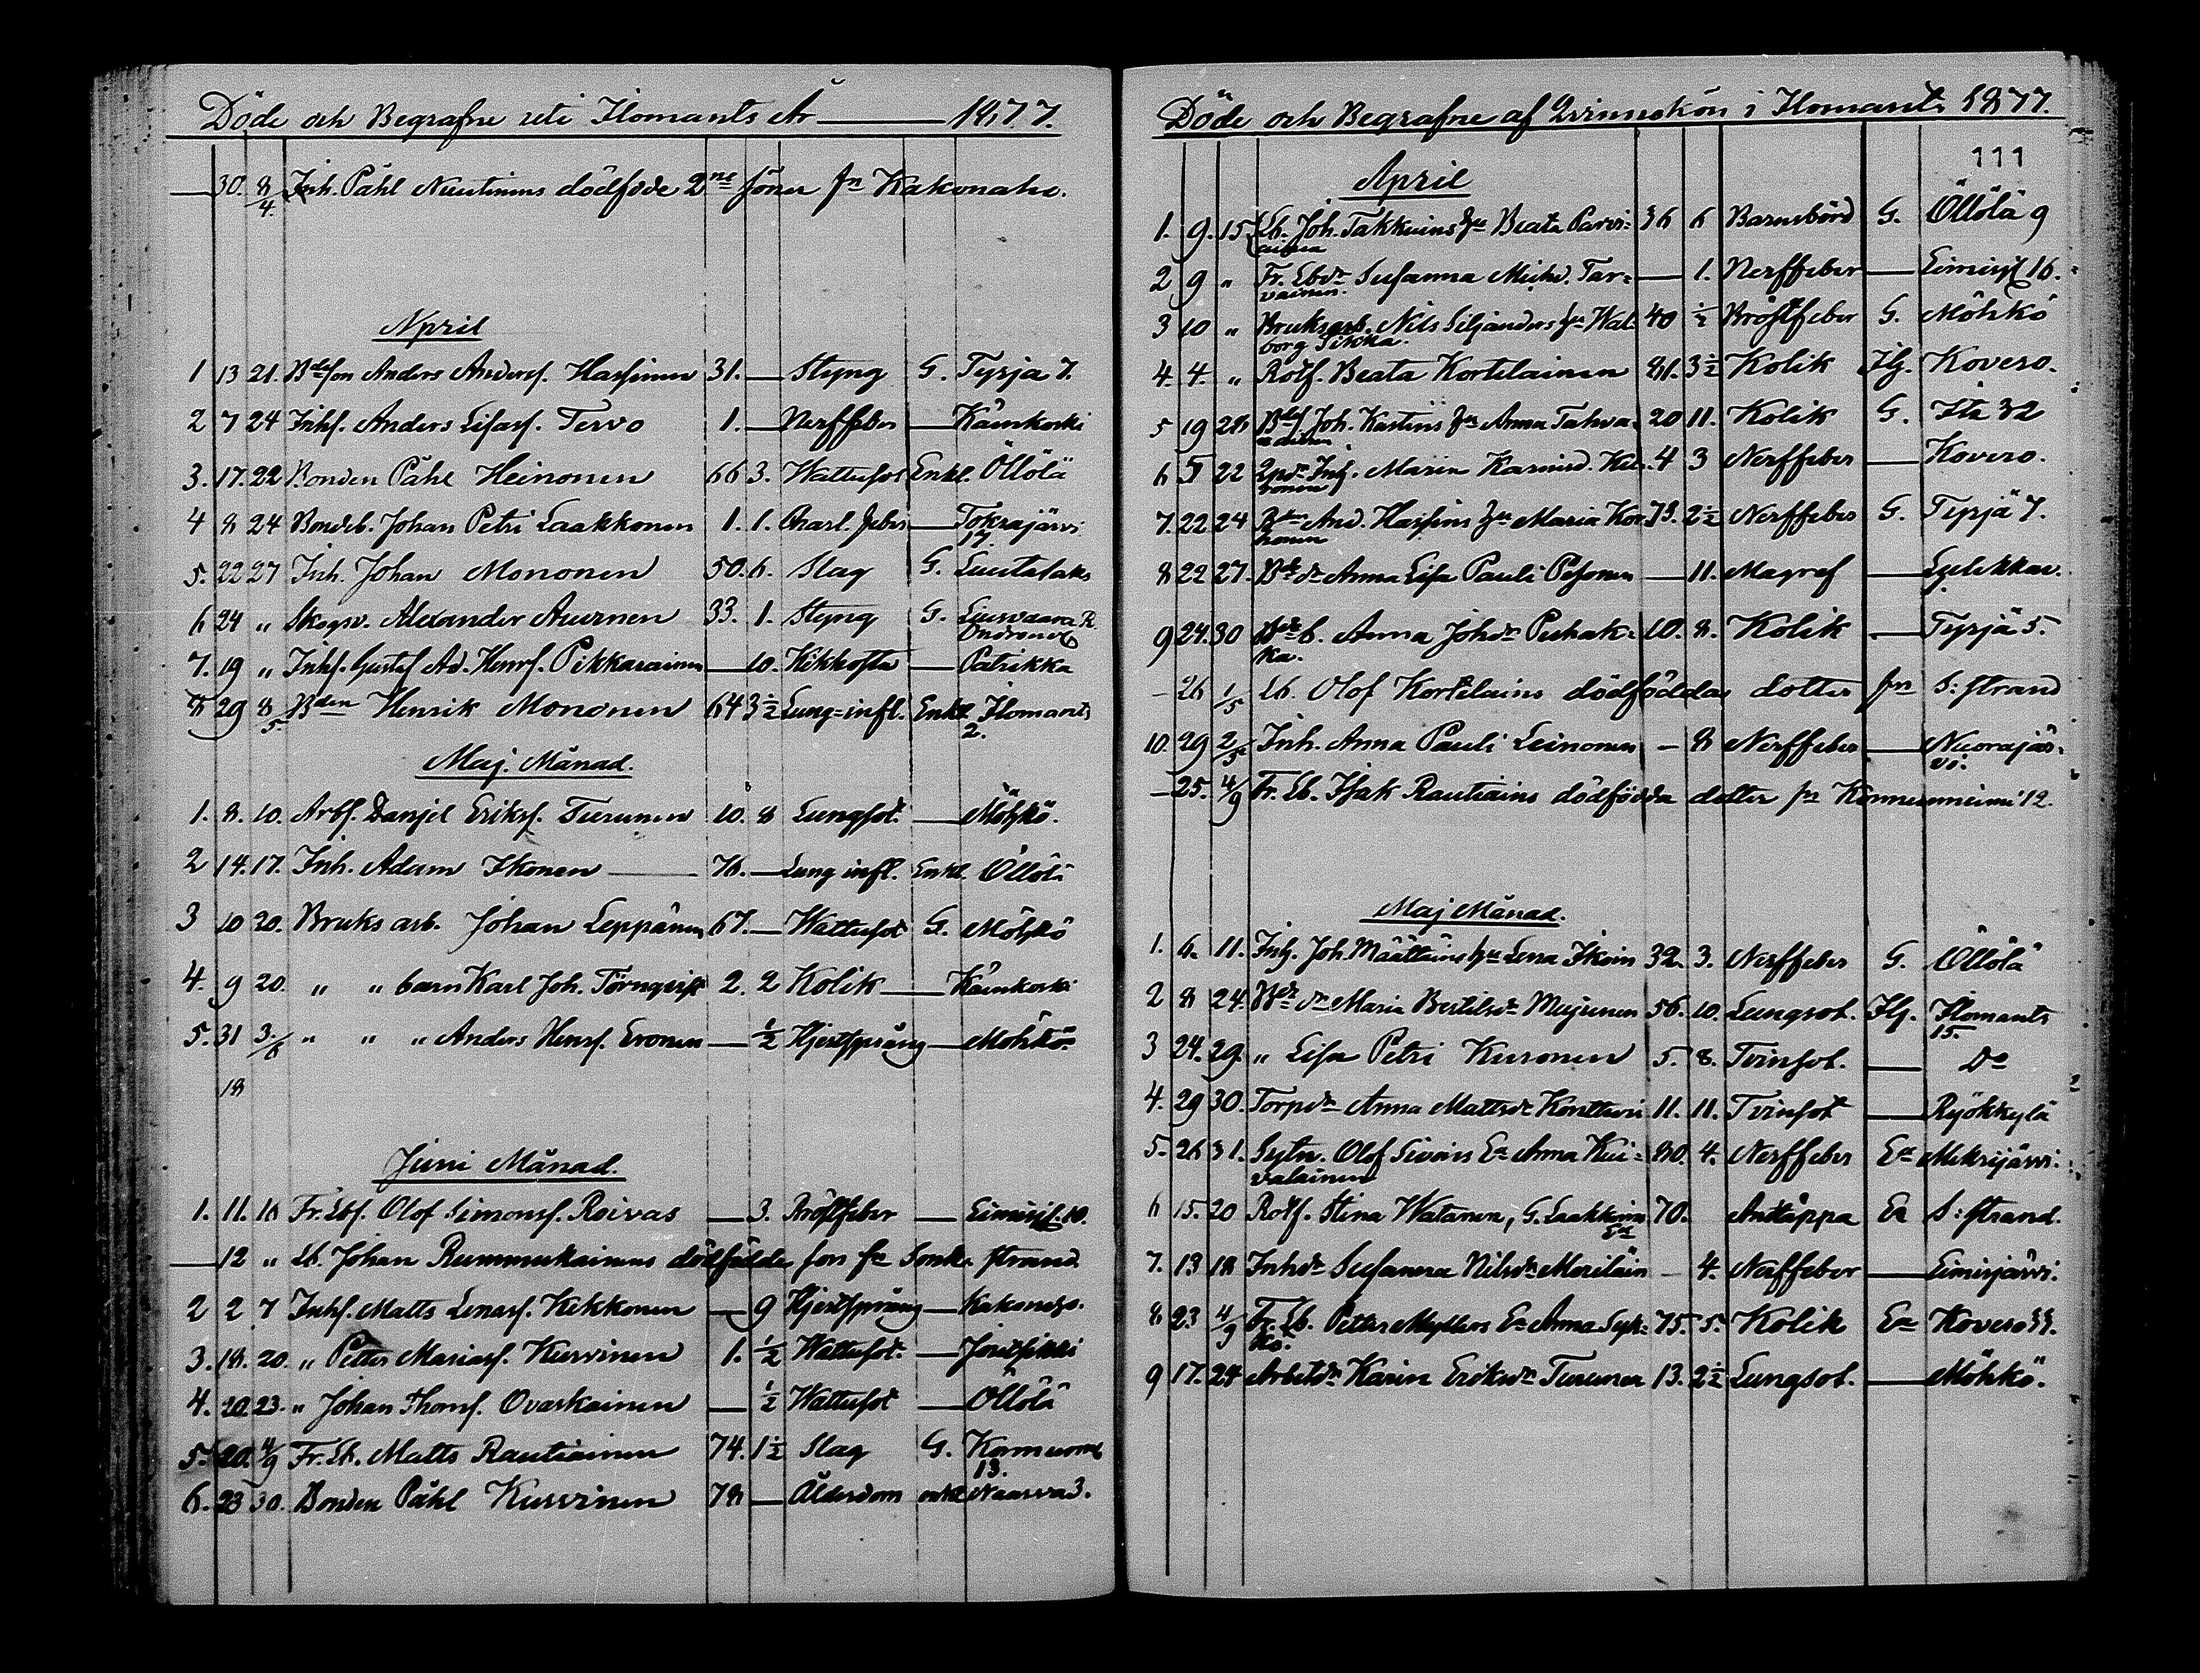 Döde och Begrafne uti Ilomants År 1877.
30. 8/4. Inh. Påhl Nuutinens dödfödde 2ne söner fn Kakonaho.
April
1 13 21. Bdeson Anders Andersf. Hassinen 31. — Styng G. Tyrja 7.
2 7 24 Inhf. Anders Lisasf. Tervo 1. — Nerffeber — Käenkoski
3. 17. 22 Bonden Påhl Heinonen 66 3. Wattusot Enkl. Öllölä
4 8 24 Bondeb. Johan Petri Laakkonen 1. 1. Charl. feber — Tokrajärvi
17.
5. 22 27 Inh. Johan Mononen 50. 6. Slag G. Luutalaks
6 24 „ Skogsv. Alexander Auvinen 33. 1. Styng G. Liusvaara R.
7. 19 „ Inhf. Gustaf Ad. Henrf. Pikkarainen — 10. Kikhosta — Patrikka
8 29 8/5. Bden Henrik Mononen 64 3½ Lung-infl. Enkl. Ilomants
2.
Maj. Månad.
1. 8. 10. Arbf. Danjel Eriksf. Turunen 10. 8 Lungsot — Möhkö.
2 14. 17. Inh. Adam Ikonen 76. — Lung infl. Enkl. Öllölä
3 10 20. Bruks arb. Johan Leppänen 67. — Wattusot G. Möhkö
4. 9 20. „ „ barn Karl Joh. Törnqvist 2. 2 Kolik — Käenkoski
5. 31 3/6 „ „ „ Anders Henrf. Eronen — ½ Hjertsprång — Möhkö
18
Juni Månad.
1. 11. 16 Fr. Lbf. Olof Simonsf. Roivas — 3. Bröstfeber — Eimisjf. 10.
— 12 „ Lb. Johan Rummukainens dödfödde son fn Sonk. strand
2 2 7 Inhf. Matts Lenasf. Kekkonen — 9 Hjertsprång — Kakonaho.
3. 18. 20. „ Petter Mariasf. Kurvinen 1. ½ Wattusot —
4. 20. 23. „ Johan Thomsf. Ovaskainen — ½ Wattusot — Öllölä
5. 20. 4/9 Fr. Lb. Matts Rautiainen 74. 1½ Slag G.
13.
6. 23 30. Bonden Påhl Kurvinen 78 — Ålderdom enkl Naarva 3.
Döde och Begrafne af Qvinnokön i Ilomants 1877.
111
April
1. 9. 15. Lb. Joh. Takkuins hu Beata Parvi- 36 6 Barnsbörd G. Öllölä 9
ainen
2 9 „ Fr. Lbdr Susanna Michd. Tar- — 1. Nerffeber — Eimisjf 16.
vainen.
3 10 „ Bruksarb. Nils Siljanders hu Wal- 40 ½ Bröstfeber G. Möhkö
borg Sikka.
4. 4. „ Rotf. Beata Kortelainen 81. 3½ Kolik Hj. Kovero.
5 19 21. Bdef Joh. Kastins hu Anna Tahva- 20 11. Kolik G. Ita 32
nainen
6 5 22 Marin Karind. 4 3 Nerffeber — Kovero.
7. 22 24 Bden And. Hassins hu Maria Kor- 73. 2½ Nerffeber G. Tyrjä 7.
honen
8 22 27. Bdedr Anna Lisa Pauli Pesonen — 11. Magref —
9 24. 30 Bdeb. Anna Johdr Puhak- 10. 8. Kolik — Tyrjä 5.
ka.
— 26 1/5 Lb. Olof Kortelains dödföddas dotter frn S: strand
10. 29 2/5 Inh. Anna Pauli Leinonen — 8 Nerffeber — Nuorajär-
vi.
— 25. 4/9 Fr. Lb. Isak Rautiains dödfödda dotter fn Konnunniemi 12.
Maj Månad.
1. 6. 11. Inh. Joh. Määttäins hu Lena Ikoin 32. 3. Nerffeber G. Öllölä
2 8 24. Bdedr Maria Bertilsdr Mujunen 56. 10. Lungsot. Hj. Ilomants
15.
3 24. 29. „ Lisa Petri Kuronen 5. 8. Tvinsot. — Do
4. 29 30. Torpdr Anna Mattsdr Kontturi 11. 11. Tvinsot — Ryökkylä
5. 26 31. Sytn. Olof Sivois Ea Anna Kui- 80. 4. Nerffeber Ea Mekrijärvi.
valainen
6 15. 20 Rotf. Stina Watanen, G. Laakkoins 70. Andtäppa Ea S: strand.
Ea
7. 13 18 Inhdr Susanna Nilsdr Meriläin — 4. Nerffeber — Eimisjärvi.
8 23 4/9 Fr. Lb. Petter Myllers Ea Anna Syk- 75. 5. Kolik Ea Kovero 33.
kö.
9 17. 24 Arbetdr Karin Eriksdr Turunen 13. 2½ Lungsot. — Möhkö.